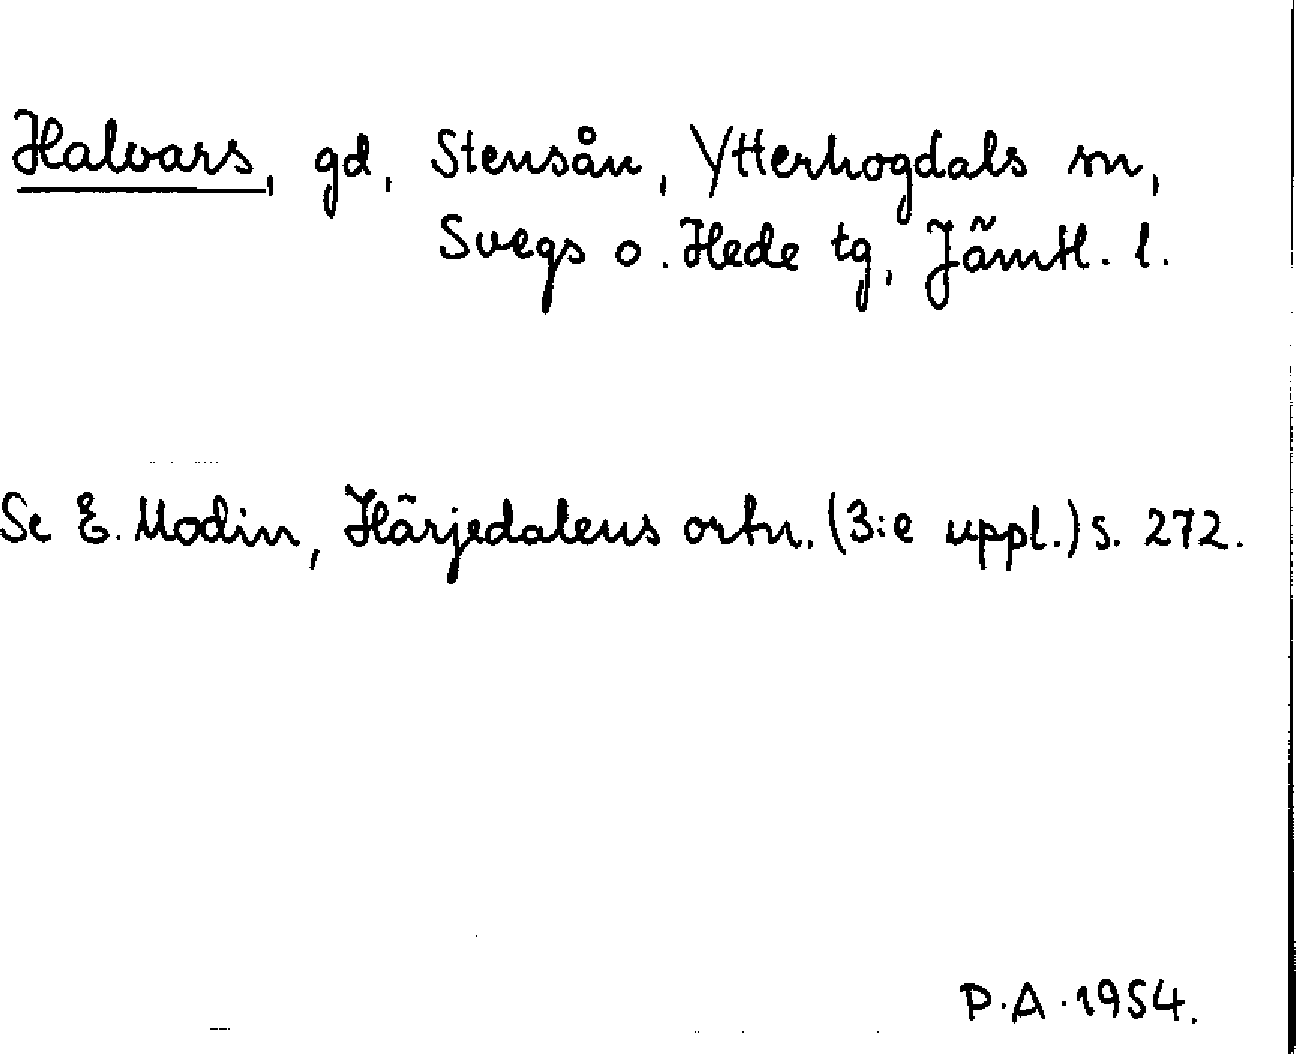 Halvars, gd, Stensån, Ytterhogdals sn,
Svegs o. Hede tg, Jämtl. l.
Se E. Modin, Härjedalens ortn. (3:e uppl.) s. 272.
P.A. 1954.